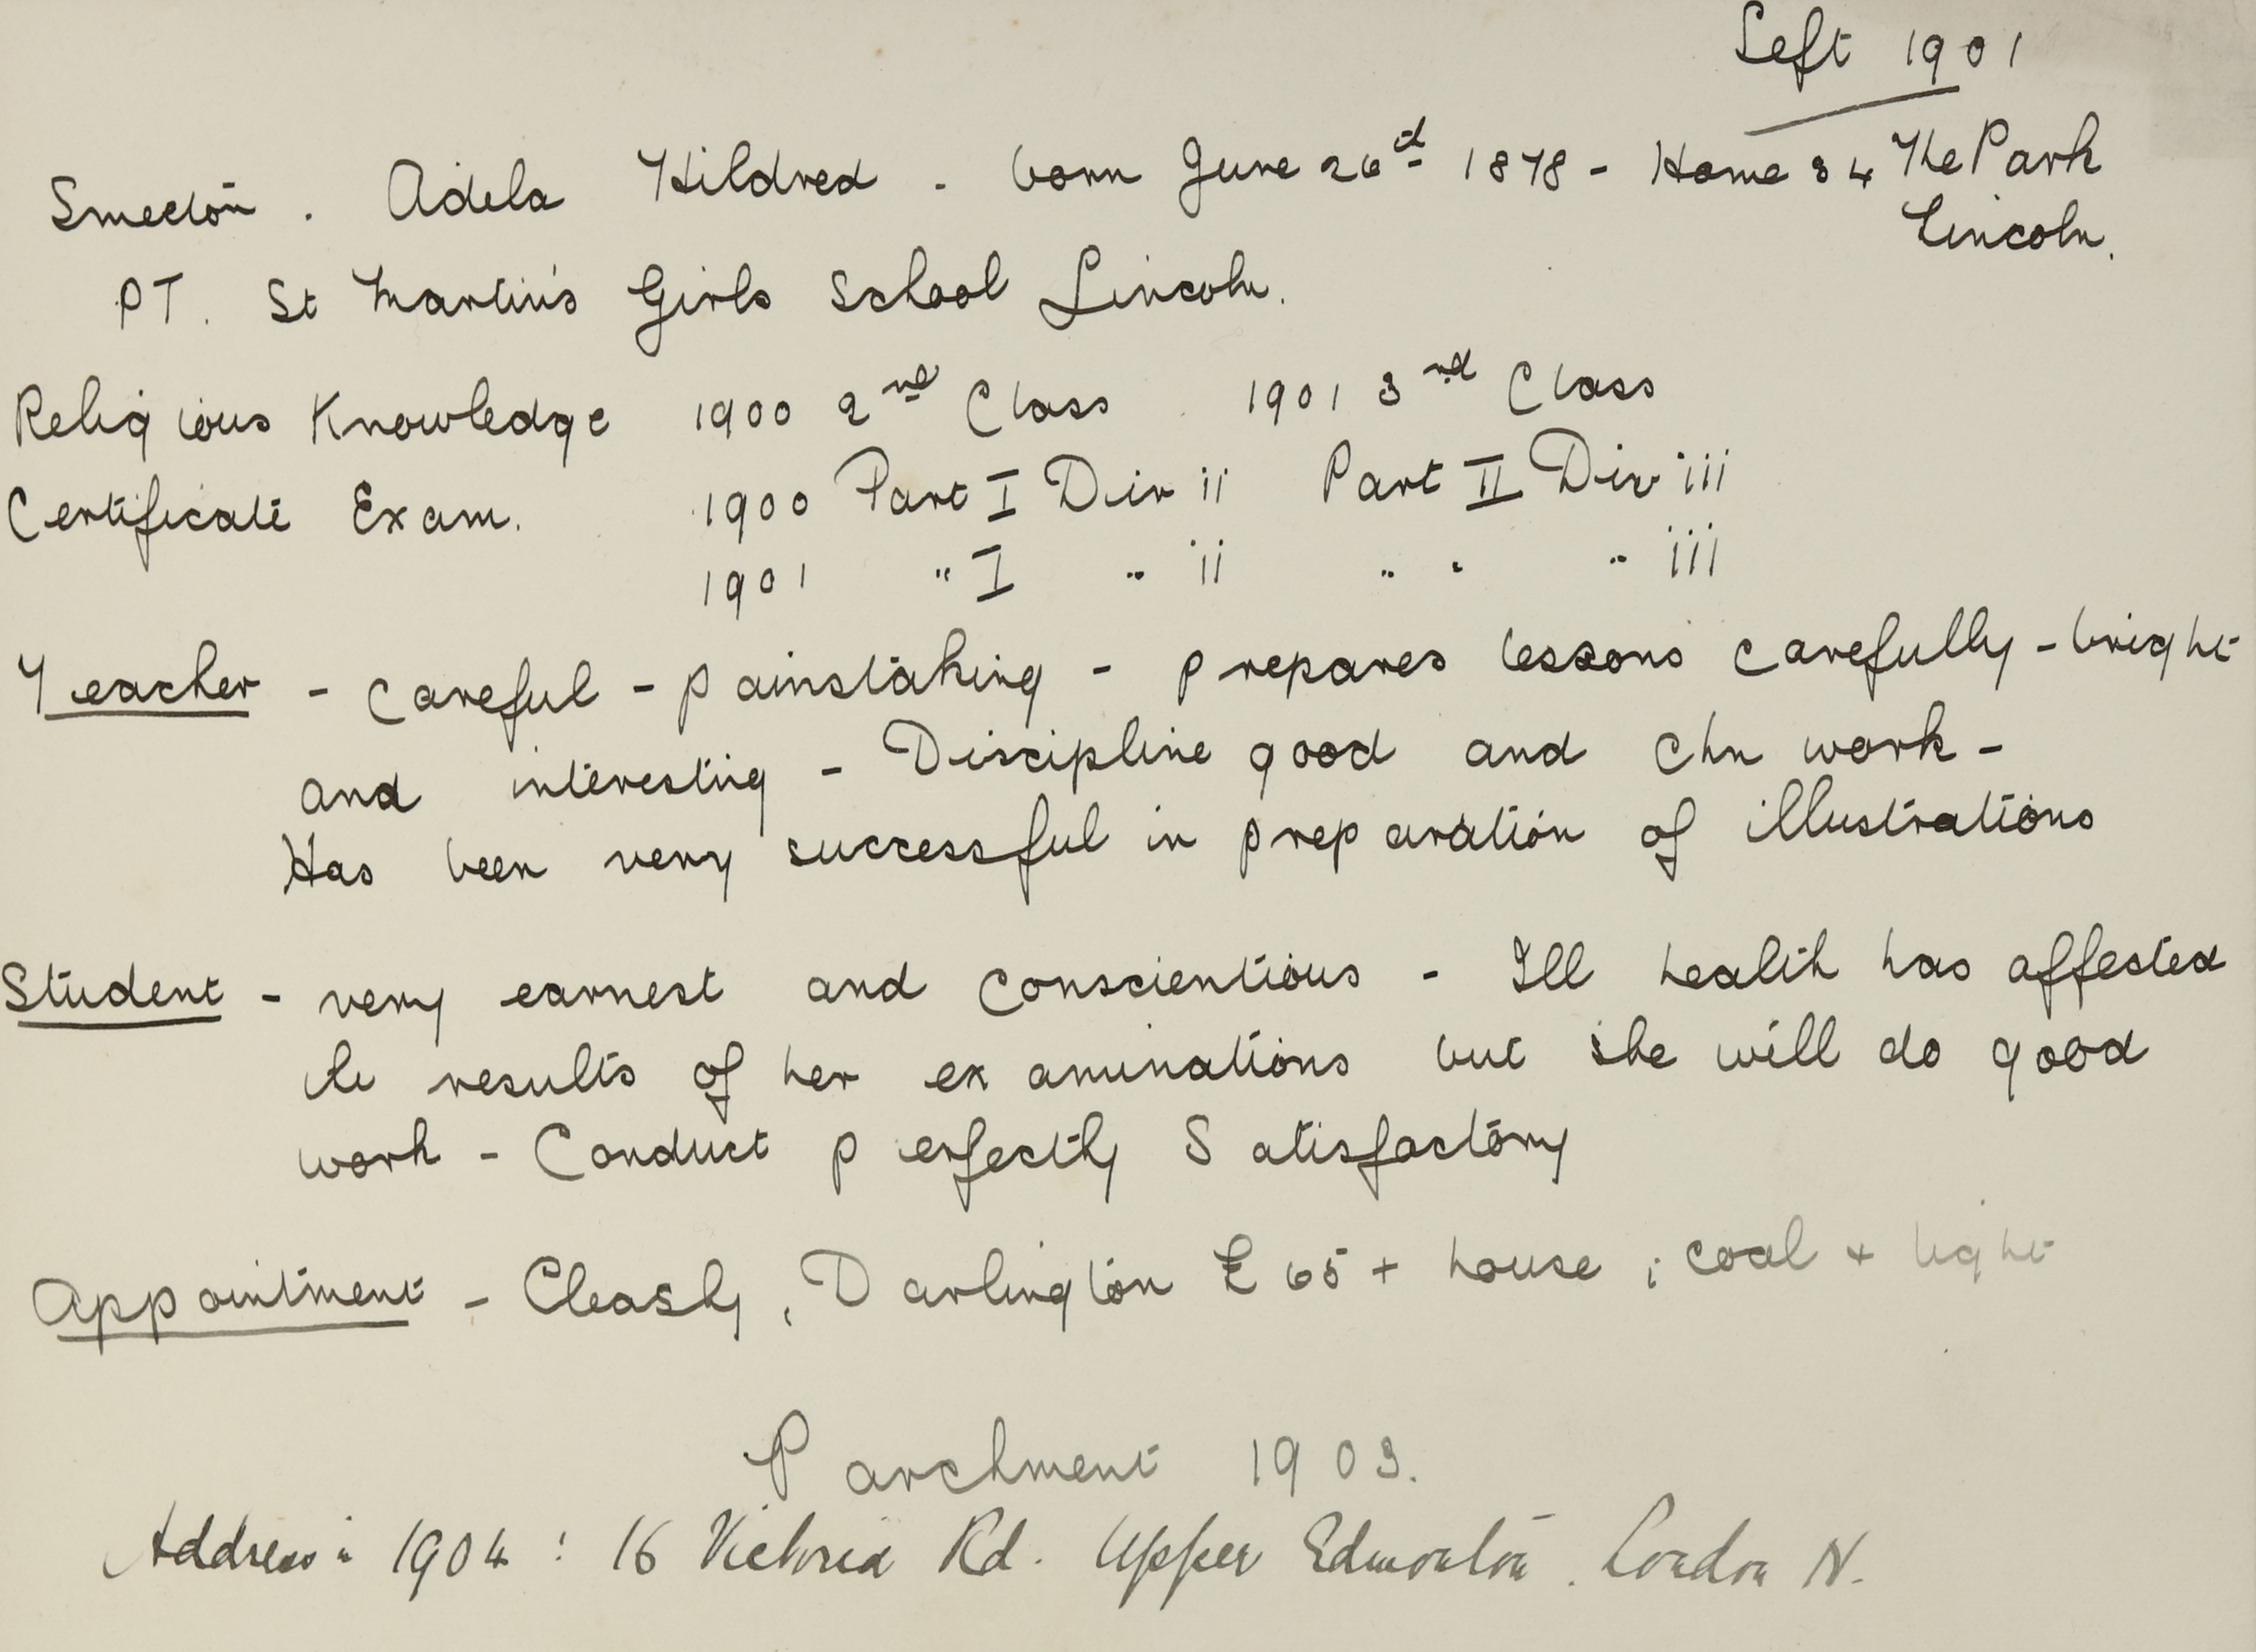 Left 1901
Smeeton. Adela Hildred - born June 26th 1878 - Home 34 The Park
Lincoln.
PT. St Martin's Girls School Lincoln.
Religious Knowledge 1900 2nd Class. 1901 3rd Class
Certificate Exam. 1900 Part I Div ii Part II Div iii
1901 " I " ii " " " iii
Teacher - Careful - painstaking - prepares lessons carefully - bright
and interesting - Discipline good and Chn work -
Has been very successful in preparation of illustrations
Student - very earnest and conscientious - Ill health has affected
the results of her examinations but she will do good
work - Conduct perfectly Satisfactory
Appointment - Cleasby, Darlington £65 + house; coal + light
Parchment 1903.
Address: 1904: 16 Victoria Rd. Upper Edmonton. London N.